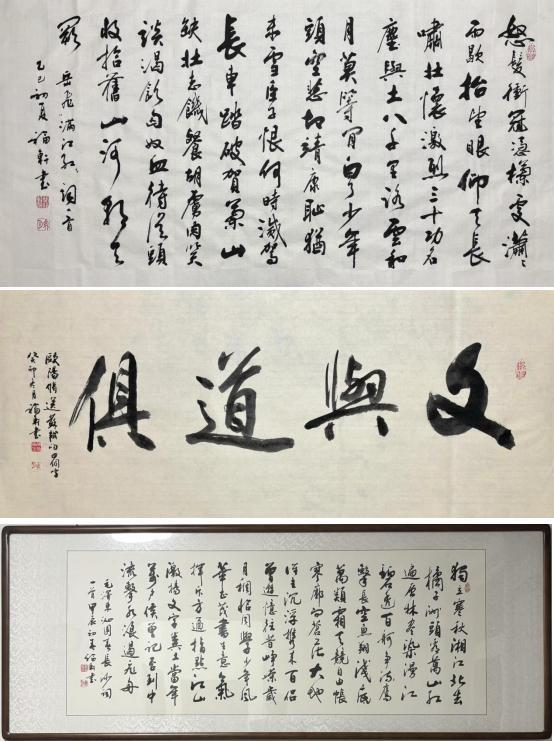 怒髮衝冠憑欄處瀟〻
雨歇抬望眼仰天長
嘯壯懷激烈三十功名
塵與土八千里路雲和
月莫等閒白了少年
頭空悲切靖康恥猶
未雪臣子恨何時滅駕
長車踏破賀蘭山
缺壯志饑餐胡虜肉笑
談渴飲匈奴血待從頭
收拾舊山河朝天
闕 岳飛滿江紅詞一首
乙巳初夏 書
文與道俱
歐陽脩送蘇軾
癸卯六月 書
獨立寒秋湘江北去
橘子洲頭看萬山紅
遍層林盡染漫江
碧透百舸爭流鷹
擊長空魚翔淺底
萬類霜天競自由悵
寥廓問蒼茫大地
誰主沉浮攜來百侶
曾遊憶往昔崢嶸歲
月稠恰同學少年風
華正茂書生意氣
揮斥方遒指點江山
激揚文字糞土當年
萬戶侯曾記否到中
流擊水浪遏飛舟
毛澤東沁園春長沙詞
一首甲辰初春 書